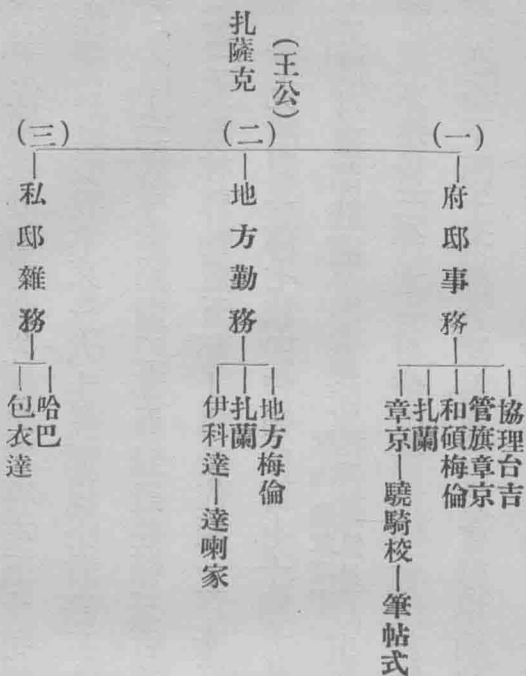 (王公)
扎薩克
(一)
府邸事務
協理台吉
管旗章京
和碩梅倫
扎蘭
章京—驍騎校—筆帖式
(二)
地方勤務
地方梅倫
扎蘭
伊科達—達喇家
(三)
私邸雜務
哈巴
包衣達